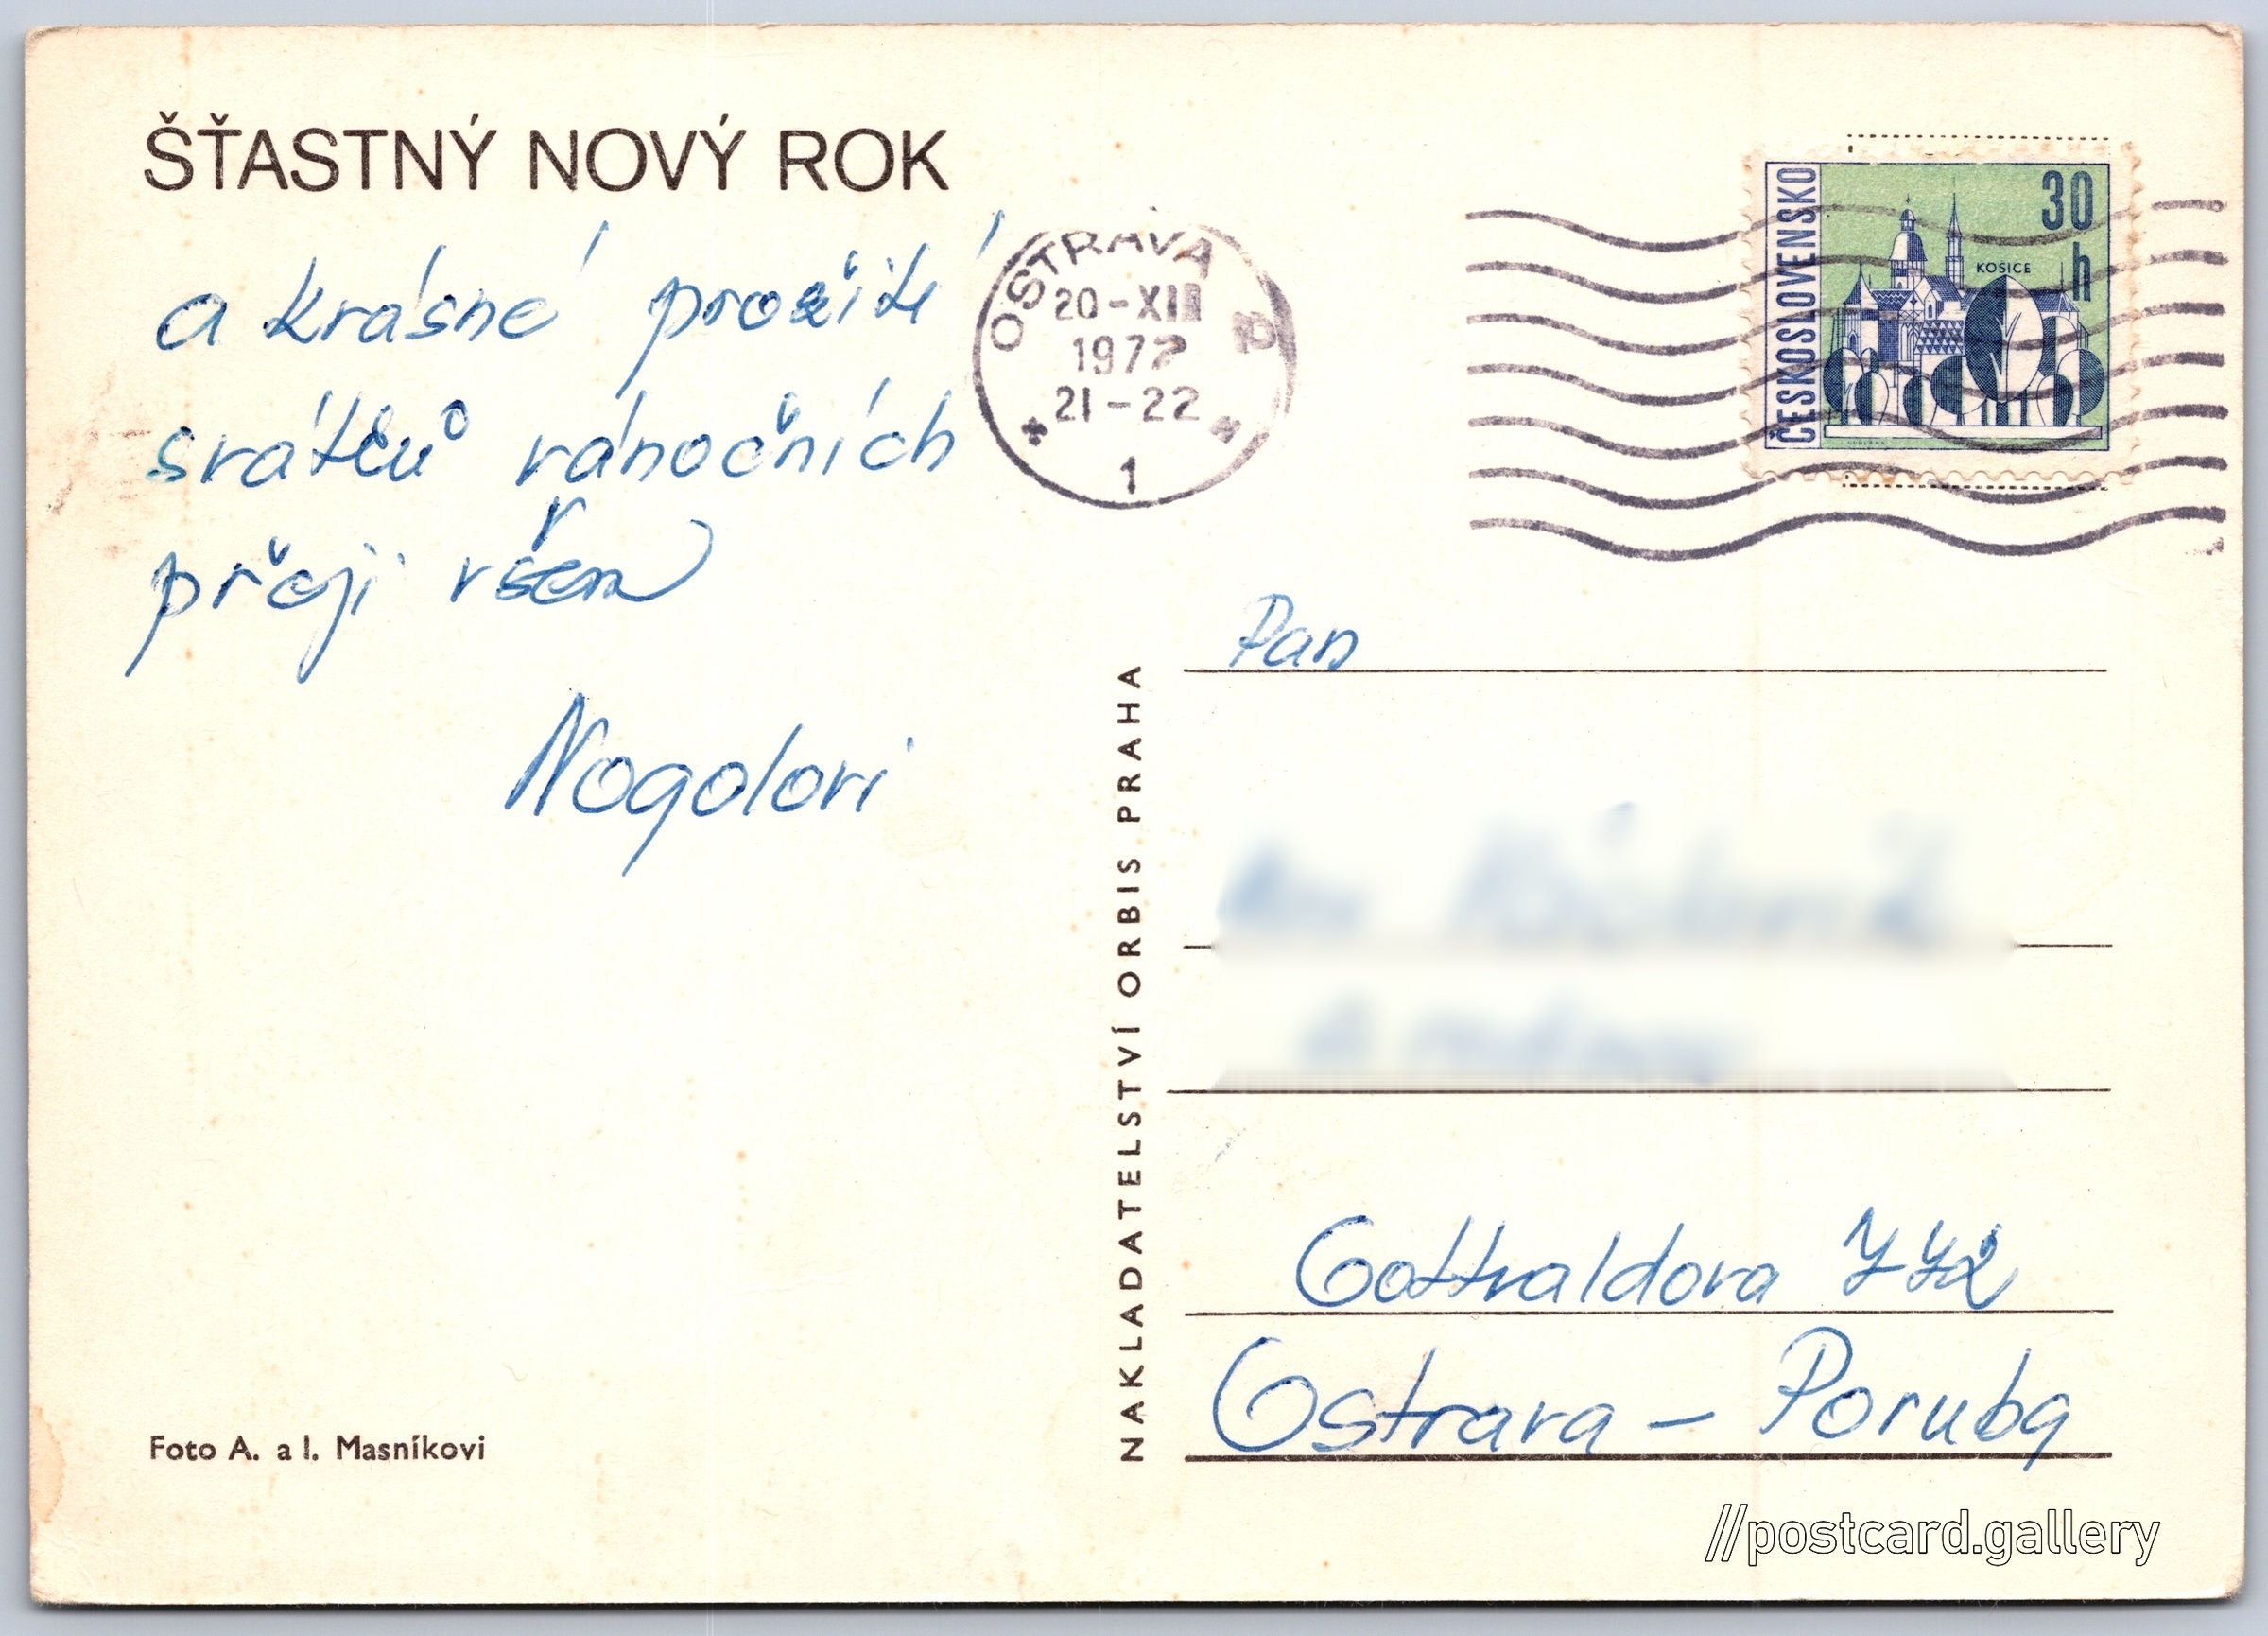 ŠŤASTNÝ NOVÝ ROK
a krásné prožití
svátků vánočních
přeji všem
Nogolovi
Foto A. a I. Masníkovi
NAKLADATELSTVÍ ORBIS PRAHA
OSTRAVA
20-XII
1972
21-22
1
ČESKOSLOVENSKO
30
h
KOŠICE
Pan
Gottvaldova
Ostrava - Poruba
//postcard.gallery